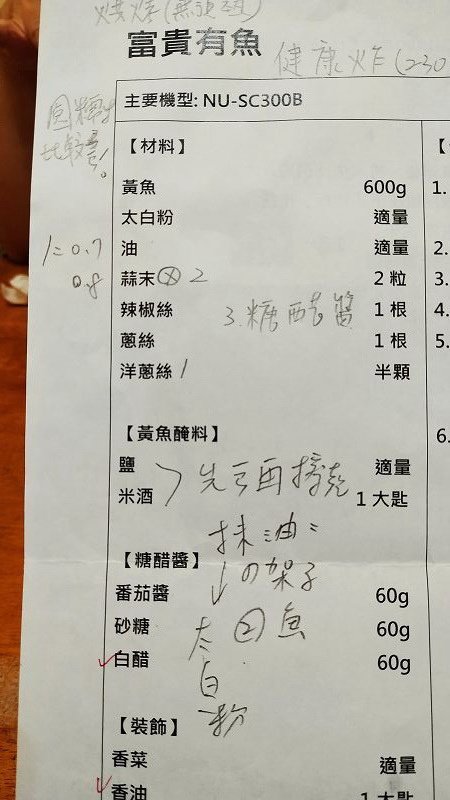 燒烤(無預熱)
富貴有魚
健康炸(230
主要機型: NU-SC300B
【材料】
黃魚 600g 1.
太白粉 適量
1=0.7 油 適量 2.
0.8 蒜末 2 2 粒 3.
辣椒絲 1 根 4.
3. 糖醋醬
蔥絲 1 根 5.
洋蔥絲 1 半顆
【黃魚醃料】 6.
鹽 適量
米酒 1 大匙
抹油
の架子
【糖醋醬】
番茄醬 60g
砂糖 60g
② 魚
白醋 60g
太
白
粉
【裝飾】
香菜 適量
香油 1 大匙